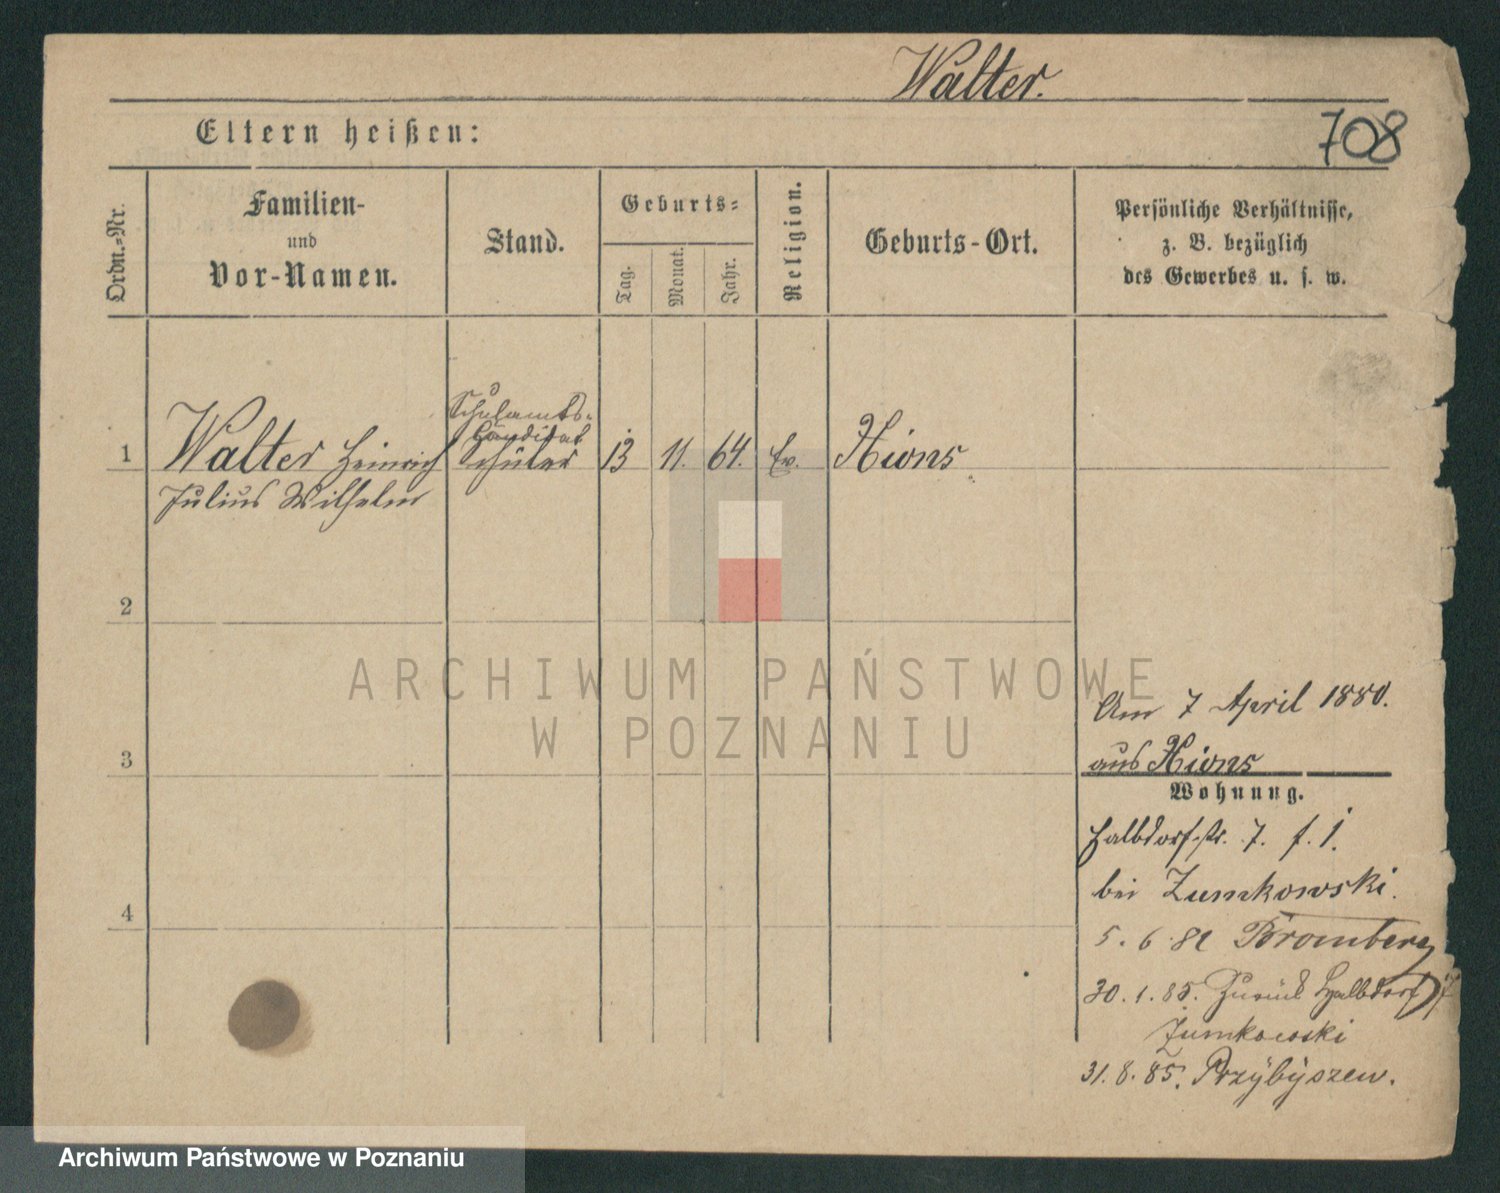 Walter.
708
Eltern heißen:
Ordn.=Nr.
Familien-
und
Vor-Namen.
Stand.
Geburts=
Tag.
Monat.
Jahr.
Religion.
Geburts-Ort.
Persönliche Verhältnisse,
z. B. bezüglich
des Gewerbes u. s. w.
Schulamts-
Candidat
1 Walter Heinrich Schüler 13 11. 64. Ev. Xions
Julius Wilhelm
2
ARCHIWUM PAŃSTWOWE
W POZNANIU
Am 7 April 1880.
aus Xions
3
Wohnung.
Halbdorfstr. 7. f. 1.
bei Zumkowski.
4
5. 6. 82 Bromberg
30. 1. 85. Zurück Halbdorf 7
Zumkowski
31. 8. 85. Przybyszew.
Archiwum Państwowe w Poznaniu